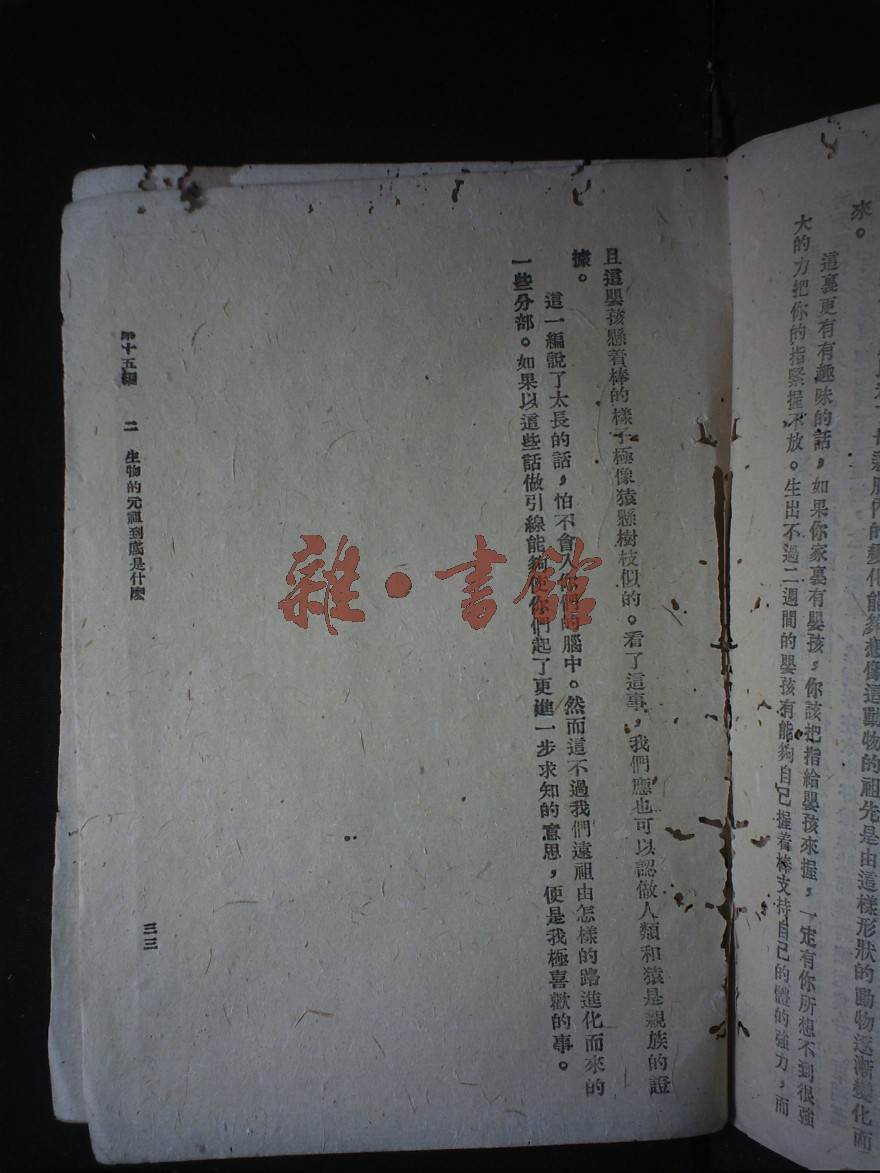 長養脈內的變化能夠想像這動物的祖先是由這樣形狀的動物逐漸變化而
來。
這裏更有有趣味的話，如果你家裏有嬰孩，你該把指給嬰孩來握，一定有你所想不到很強
大的力把你的指緊握不放。生出不過二週間的嬰孩有能夠自己握着棒支持自己的體的強力，而
且這嬰孩懸着棒的樣子極像猿懸樹枝似的。看了這事，我們應也可以認做人類和猿是親族的證
據。
這一編說了太長的話，怕不會入你們的腦中。然而這不過我們遠祖由怎樣的路進化而來的
一些分部。如果以這些話做引線能夠使你們起了更進一步求知的意思，便是我極喜歡的事。
第十五編 二 生物的元祖到底是什麼
三三
雜·書館